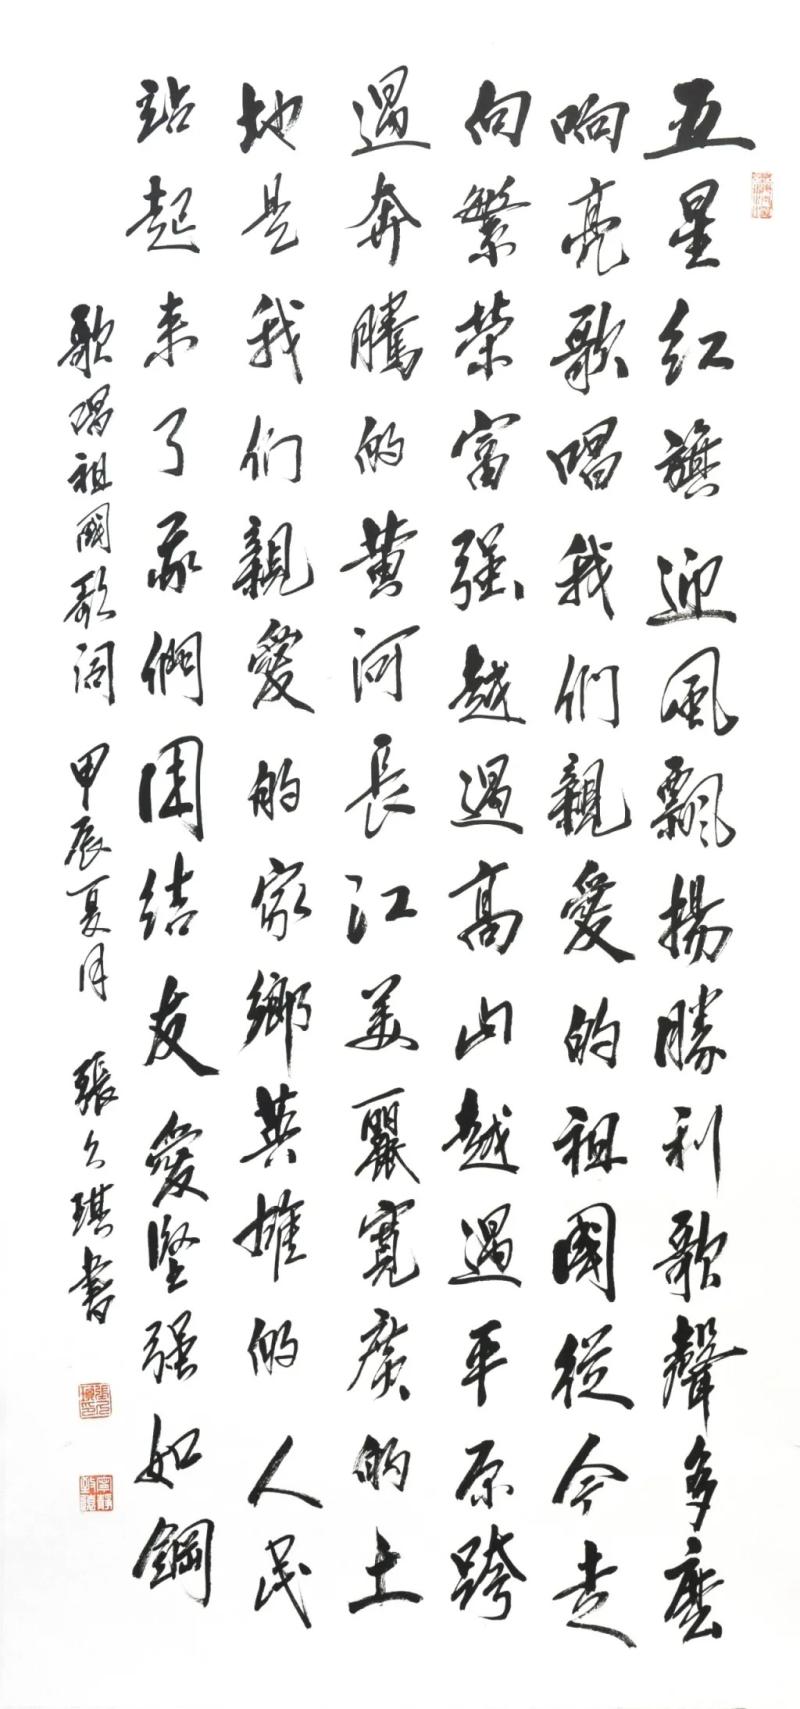 五星红旗迎風飄揚勝利歌聲多麽
响亮歌唱我们親愛的祖國從今走
向繁荣富强越過高山越過平原跨
過奔騰的黄河長江美麗寬廣的土
地是我们親愛的家鄉英雄的人民
站起来了我們团结友愛堅强如鋼
歌唱祖國歌词 甲辰夏月 張久琪書
寧靜致遠